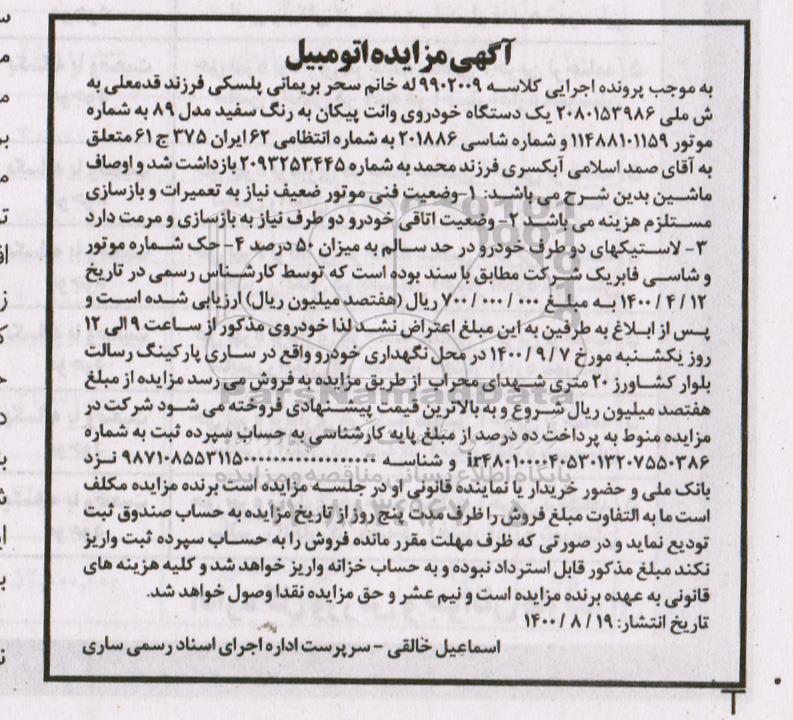 آگهی مزایده اتومبیل
به موجب پرونده اجرایی کلاسه ۹۹۰۲۰۰۹ له خانم سحر بریمانی پلسکی فرزند قدمعلی به
ش ملی ۲۰۸۰۱۵۳۹۸۶ یک دستگاه خودروی وانت پیکان به رنگ سفید مدل ۸۹ به شماره
موتور ۱۱۴۸۸۱۰۱۱۵۹ و شماره شاسی ۲۰۱۸۸۶ به شماره انتظامی ۶۲ ایران ۳۷۵ ج ۶۱ متعلق
به آقای صمد اسلامی آبکسری فرزند محمد به شماره ۲۰۹۳۲۵۳۴۴۵ بازداشت شد و اوصاف
ماشین بدین شرح می باشید: ۱- وضعیت فنی موتور ضعیف نیاز به تعمیرات و بازسازی
مستلزم هزینه می باشد ۲- وضعیت اتاقی خودرو دو طرف نیاز به بازسازی و مرمت دارد
۳- لاستیکهای دو طرف خودرو در حد سالم به میزان ۵۰ درصد ۴- حک شماره موتور
و شاسی فابریک شرکت مطابق با سند بوده است که توسط کارشناس رسمی در تاریخ
۱۲ / ۴ / ۱۴۰۰ به مبلغ ۰۰۰ / ۰۰۰ / ۷۰۰ ریال (هفتصد میلیون ریال) ارزیابی شده است و
پس از ابلاغ به طرفین به این مبلغ اعتراض نشد لذا خودروی مذکور از ساعت ۹ الی ۱۲
روز یکشنبه مورخ ۷ / ۹ / ۱۴۰۰ در محل نگهداری خودرو واقع در ساری پارکینگ رسالت
بلوار کشاورز ۲۰ متری شهدای محراب از طریق مزایده به فروش می رسد مزایده از مبلغ
هفتصد میلیون ریال شروع و به بالاترین قیمت پیشنهادی فروخته می شود شرکت در
مزایده منوط به پرداخت ده درصد از مبلغ پایه کارشناسی به حساب سپرده ثبت به شماره
و شناسه نزد
بانک ملی و حضور خریدار یا نماینده قانونی او در جلسه مزایده است برنده مزایده مکلف
است ما به التفاوت مبلغ فروش را ظرف مدت پنج روز از تاریخ مزایده به حساب صندوق ثبت
تودیع نماید و در صورتی که ظرف مهلت مقرر مانده فروش را به حساب سپرده ثبت واریز
نکند مبلغ مذکور قابل استرداد نبوده و به حساب خزانه واریز خواهد شد و کلیه هزینه های
قانونی به عهده برنده مزایده است و نیم عشر و حق مزایده نقدا وصول خواهد شد.
تاریخ انتشار: ۱۹ / ۸ / ۱۴۰۰
اسماعیل خالقی - سرپرست اداره اجرای اسناد رسمی ساری
ParsNamadData
پایگاه اطلاع رسانی مناقصه و مزایده